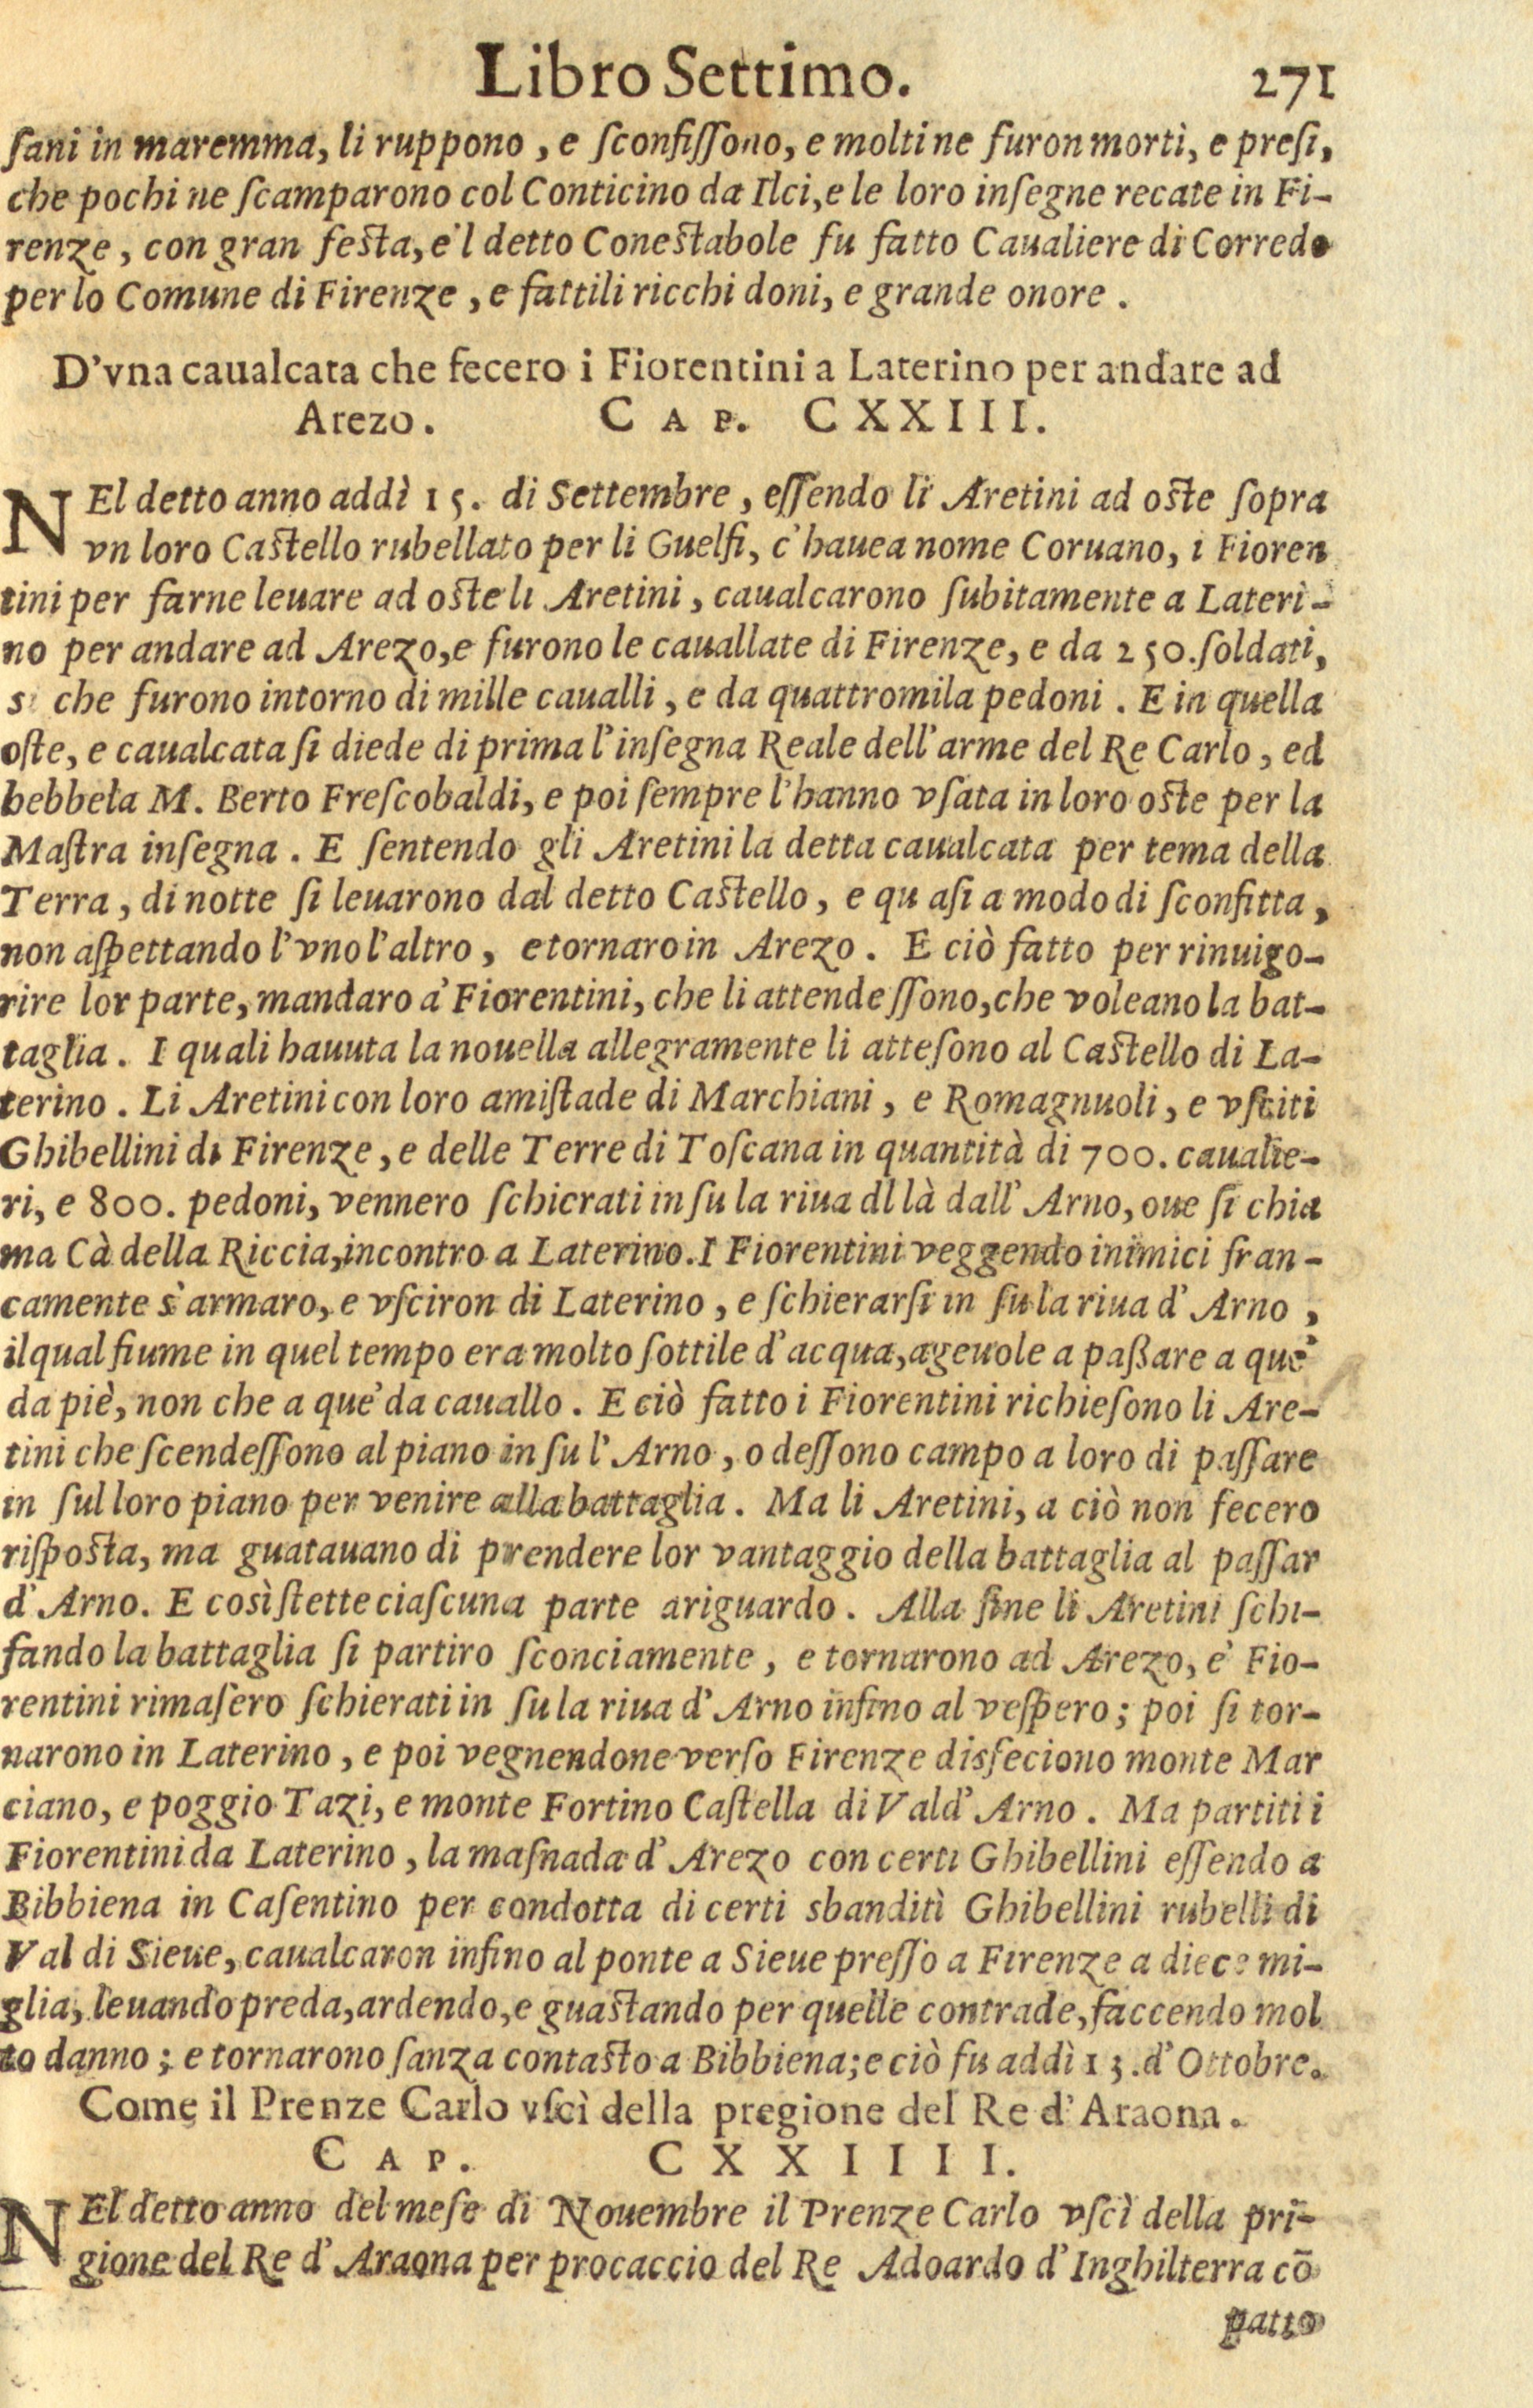 Libro Settimo. 271
ſani in maremma, li ruppono, e ſconfiſſono, e molti ne furon mortì, e preſi,
che pochi ne ſcamparono col Conticino da Ilci, e le loro inſegne recate in Fi-
renze, con gran feſta, e'l detto Coneſtabole fu fatto Caualiere di Corredo
per lo Comune di Firenze, e fattili ricchi doni, e grande onore.
D'vna caualcata che fecero i Fiorentini a Laterino per andare ad
Arezo. CAP. CXXIII.
NEl detto anno addì 15. di Settembre, eſſendo li Aretini ad oſte ſopra
vn loro Caſtello rubellato per li Guelfi, c'hauea nome Coruano, i Fioren
tini per farne leuare ad oſte li Aretini, caualcarono ſubitamente a Laterì-
no per andare ad Arezo, e furono le cauallate di Firenze, e da 250. ſoldati,
si che furono intorno di mille caualli, e da quattromila pedoni. E in quella
oſte, e caualcata ſi diede di prima l'inſegna Reale dell'arme del Re Carlo, ed
hebbela M. Berto Freſcobaldi, e poi ſempre l'hanno vſata in loro oſte per la
Maſtra inſegna. E ſentendo gli Aretini la detta caualcata per tema della
Terra, di notte ſi leuarono dal detto Caſtello, e qu aſi a modo di ſconfitta,
non aſpettando l'vno l'altro, e tornaro in Arezo. E ciò fatto per rinuigo-
rire lor parte, mandaro a' Fiorentini, che li attendeſſono, che voleano la bat-
taglia. I quali hauuta la nouella allegramente li atteſono al Caſtello di La-
terino. Li Aretini con loro amiſtade di Marchiani, e Romagnuoli, e vſciti
Ghibellini di Firenze, e delle Terre di Toſcana in quantità di 700. caualie-
ri, e 800. pedoni, vennero ſchierati in ſu la riua dl là dall'Arno, oue ſi chia
ma Cà della Riccia, incontro a Laterino. I Fiorentini veggendo inimici fran-
camente s'armaro, e vſciron di Laterino, e ſchierarſi in ſu la riua d'Arno,
il qual fiume in quel tempo era molto ſottile d'acqua, ageuole a paßare a que'
da piè, non che a que' da cauallo. E ciò fatto i Fiorentini richieſono li Are-
tini che ſcendeſſono al piano in ſu l'Arno, o deſſono campo a loro di paſſare
in ſul loro piano per venire alla battaglia. Ma li Aretini, a ciò non fecero
riſpoſta, ma guatauano di prendere lor vantaggio della battaglia al paſſar
d'Arno. E così ſtette ciaſcuna parte a riguardo. Alla fine li Aretini ſchi-
fando la battaglia ſi partiro ſconciamente, e tornarono ad Arezo, e' Fio-
rentini rimaſero ſchierati in ſu la riua d'Arno infino al veſpero; poi ſi tor-
narono in Laterino, e poi vegnendone verſo Firenze disfeciono monte Mar
ciano, e poggio Tazi, e monte Fortino Caſtella di Vald'Arno. Ma partiti i
Fiorentini da Laterino, la maſnada d'Arezo con certi Ghibellini eſſendo a
Bibbiena in Caſentino per condotta di certi sbanditì Ghibellini rubelli di
Val di Sieue, caualcaron infino al ponte a Sieue preſſo a Firenze a diece mi-
glia, leuando preda, ardendo, e guaſtando per quelle contrade, faccendo mol
to danno; e tornarono ſanza contaſto a Bibbiena; e ciò fu addì 13. d'Ottobre.
Come il Prenze Carlo vſcì della pregione del Re d'Araona.
CAP. CXXIIII.
NEl detto anno del meſe di Nouembre il Prenze Carlo vſcì della pri-
gione del Re d'Araona per procaccio del Re Adoardo d'Inghilterra cō
patto